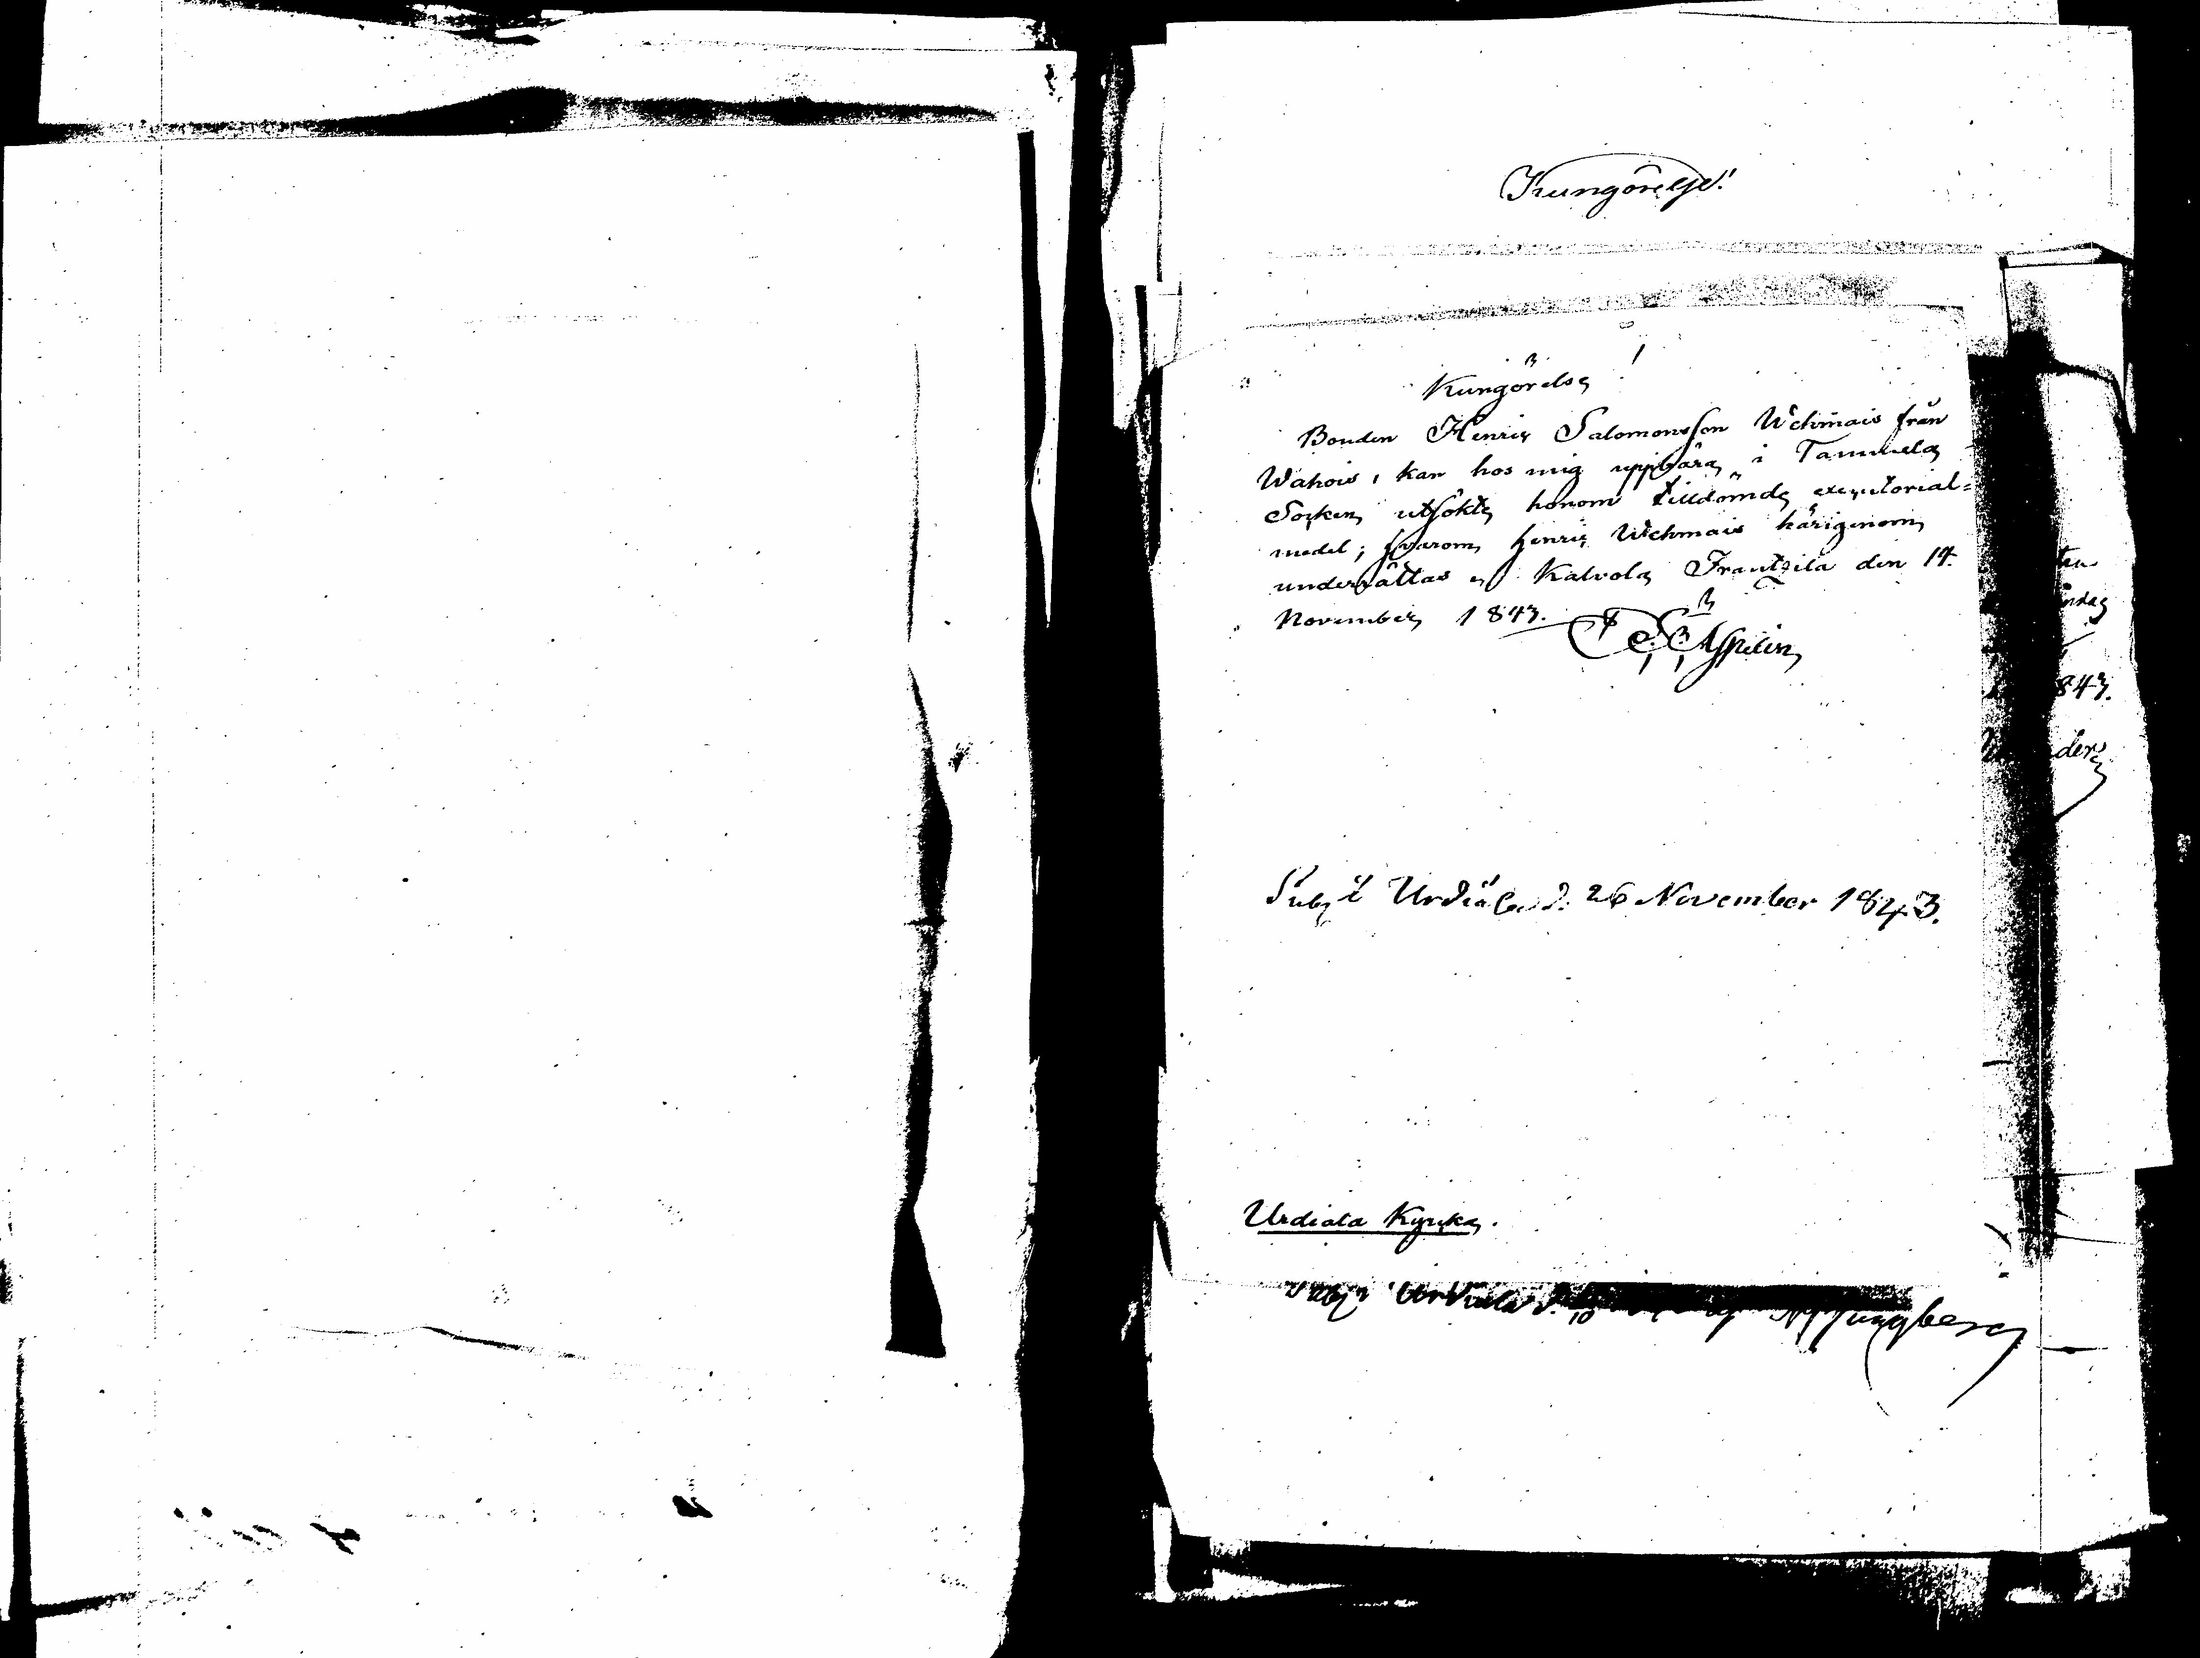 Kungörelse!
Kungörelse!
Bonden Henric Salomonsson Wehmais från
Wahois, kan hos mig uppbära, i Tammela
Socken utsökte honom tilldömde executorial-
medel; hvarom Henric Wehmais härigenom
underrättas. Kalvola Frantzila den 14.
November 1843.
Aspelin
Publ. i Urdiala d. 26 November 1843.
Urdiala Kyrka.
Publ. i Urdiala d. 10
Ljungberg
843.